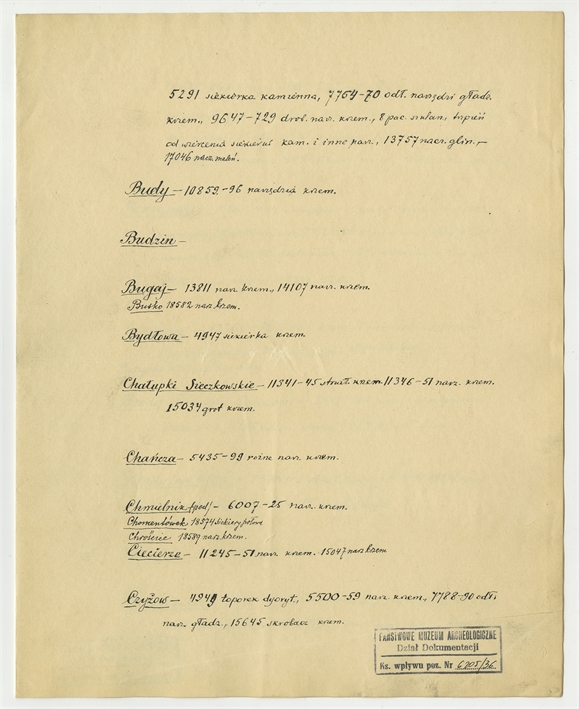 5291 siekierka kamienna, 7764-70 odł. narzędzi gładz.
krzem., 9647-729 drob. narz. krzem., 8 pac. szklan,
od wiercenia siekierek kam. i inne narz., 13757 nacz. glin.,-
17046 nacz. malow.
Budy - 10859-96 narzędzia krzem.
Budzin -
Bugaj - 13811 narz. krzem., 14107 narz. krzem.
Busko 18582 narz. krzem.
Bydłowa - 4947 siekierka krzem.
Chałupki Sieczkowskie - 11341-45 strzał. krzem. 11346-51 narz. krzem.
15034 grot krzem.
Chańcza - 5435-99 różne narz. krzem.
Chmielnik (pod) - 6007-25 narz. krzem.
Chomentówek 18574
18589 narz. krzem.
Ciecierze - 11245-51 narz. krzem. 15047 narz. krzem
Czyżow - 4949 toporek dyoryt., 5500-59 narz. krzem., 7788-90 odł.
narz. gładz., 15645 skrobacz krzem.
PAŃSTWOWE MUZEUM ARCHEOLOGICZNE
Dział Dokumentacji
Ks. wpływu poz. Nr 6205/36